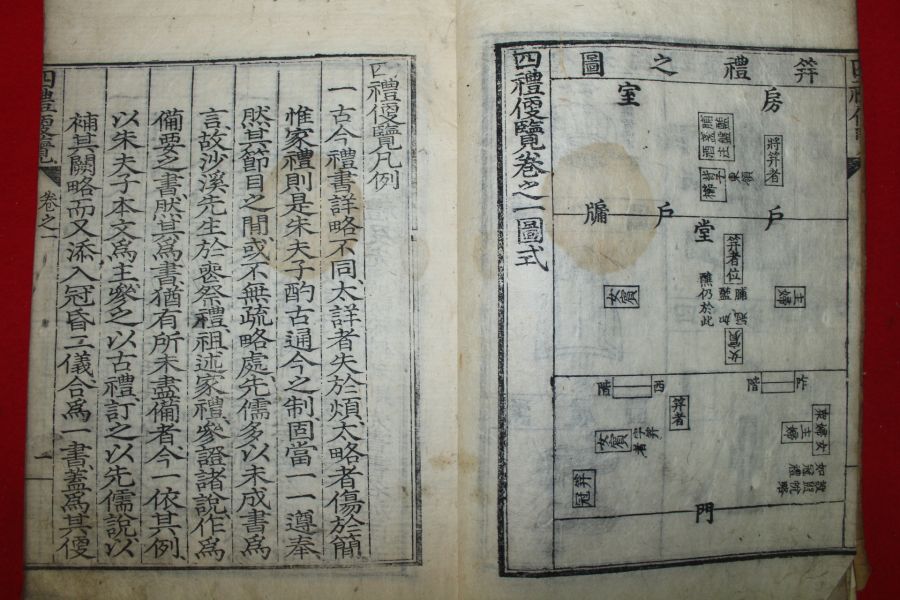 笄禮之圖
房
室
將笄者
戶
戶
牖
堂
笄者位
醮仍於此
女賓
主婦
西階
笄者
女賓
主婦
笄冠
門
四禮便覽卷之一圖式
四禮便覽凡例
一古今禮書詳略不同太詳者失於煩太略者傷於簡
惟家禮則是朱夫子酌古通今之制固當一一遵奉
然其節目之間或不無疏略處先儒多以未成書爲
言故沙溪先生於喪祭禮祖述家禮參證諸說作爲
備要之書然其爲書猶有所未盡備者今一依其例
以朱夫子本文爲主參之以古禮訂之以先儒說以
補其闕略而又添入冠昏二儀合爲一書蓋爲其便
四禮便覽 卷之一 一